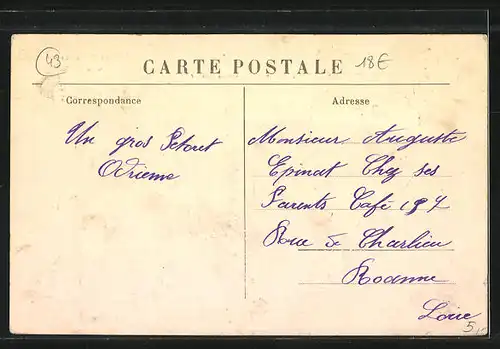 43
18€
CARTE POSTALE
Correspondance
Adresse
Un gros
Monsieur Auguste
Epinat Chez ses
Parents Café 197
Rue de Charlieu
Roanne
Loire